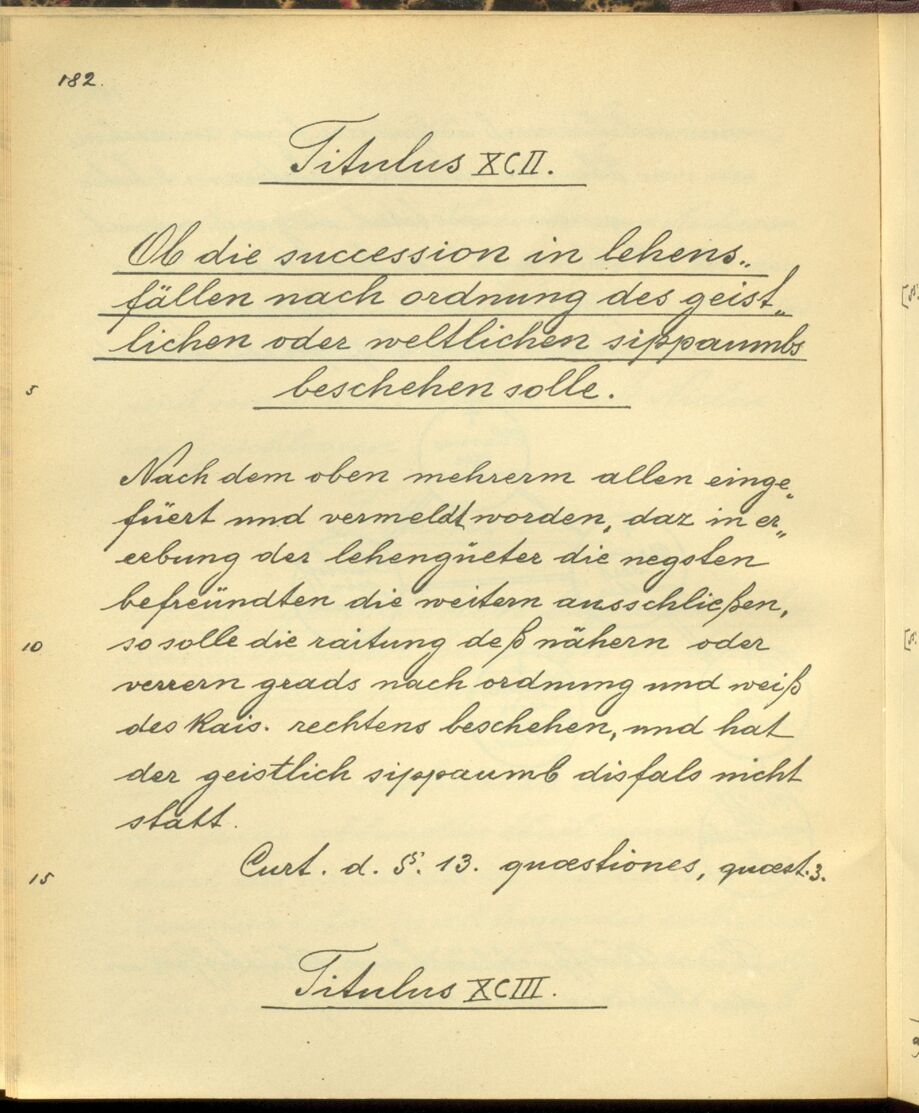 182.
Titulus XCII.
Ob die succession in lehens„
fällen nach ordnung des geist„
lichen oder weltlichen sippaumbs
5
beschehen solle.
Nach dem oben mehrerm allen einge„
füert und vermeldt worden, daz in er„
erbung der lehengüeter die negsten
befreündten die weitern ausschließen,
10
so solle die raitung deß nähern oder
verrern grads nach ordnung und weiß
des Kais. rechtens beschehen, und hat
der geistlich sippaumb disfals nicht
statt.
15
Curt. d. §. 13. quæstiones, quæst. 3.
Titulus XCIII.